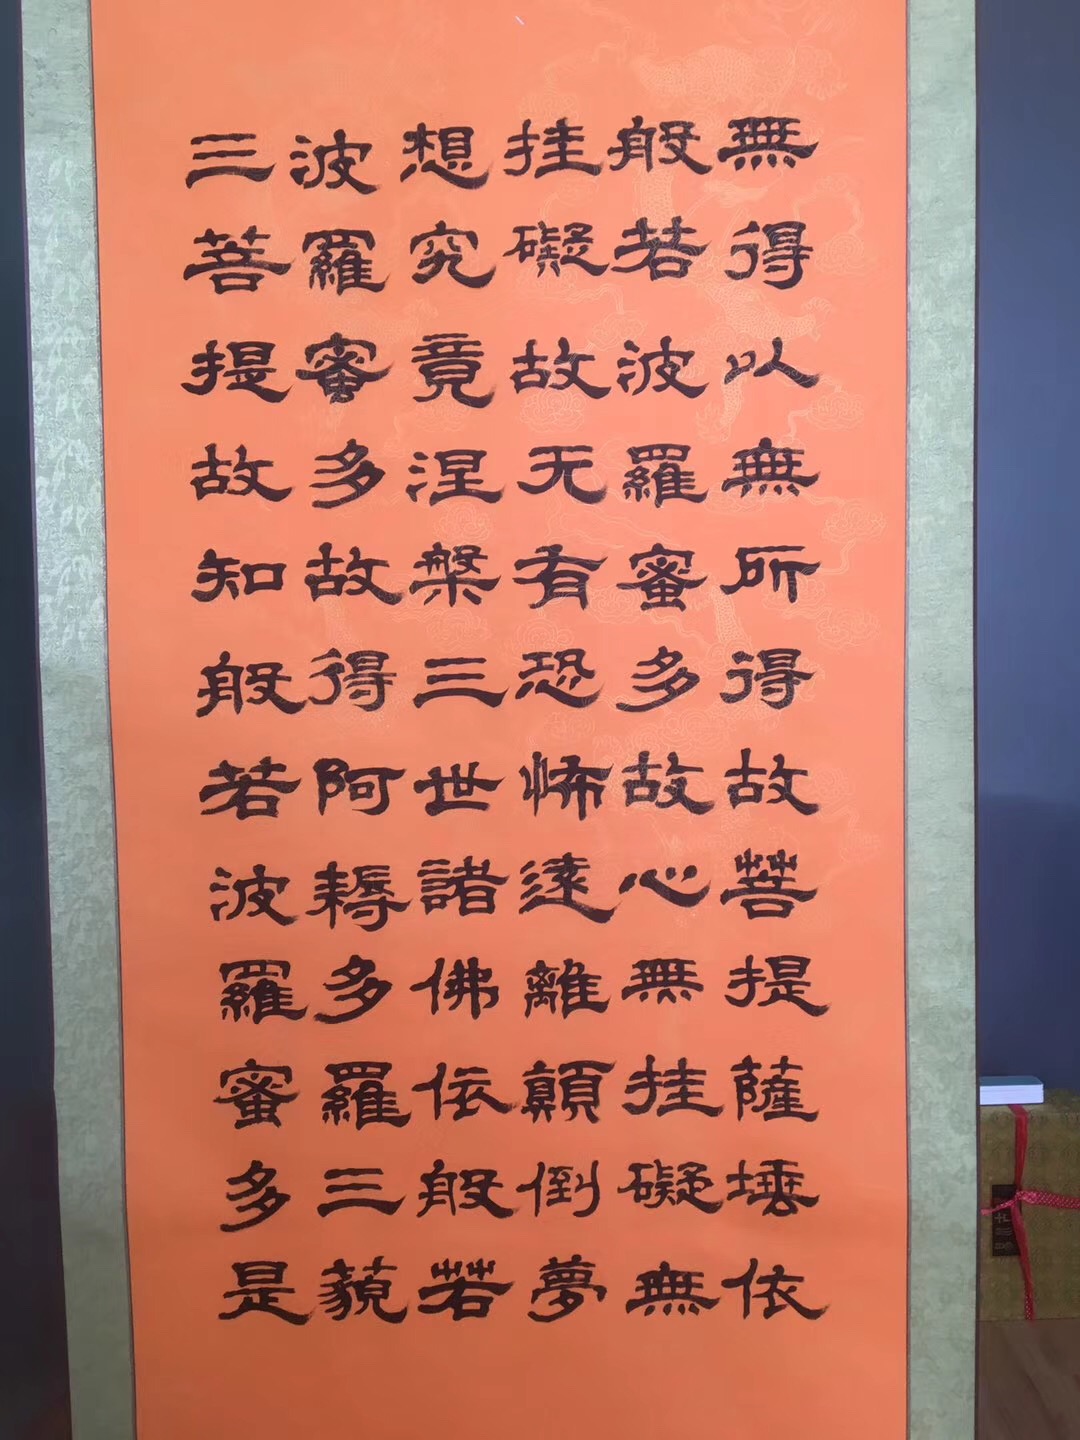 無得以無所得故菩提薩埵依
般若波羅蜜多故心無挂礙無
挂礙故无有恐怖遠離顛倒夢
想究竟涅槃三世諸佛依般若
波羅蜜多故得阿耨多羅三藐
三菩提故知般若波羅蜜多是